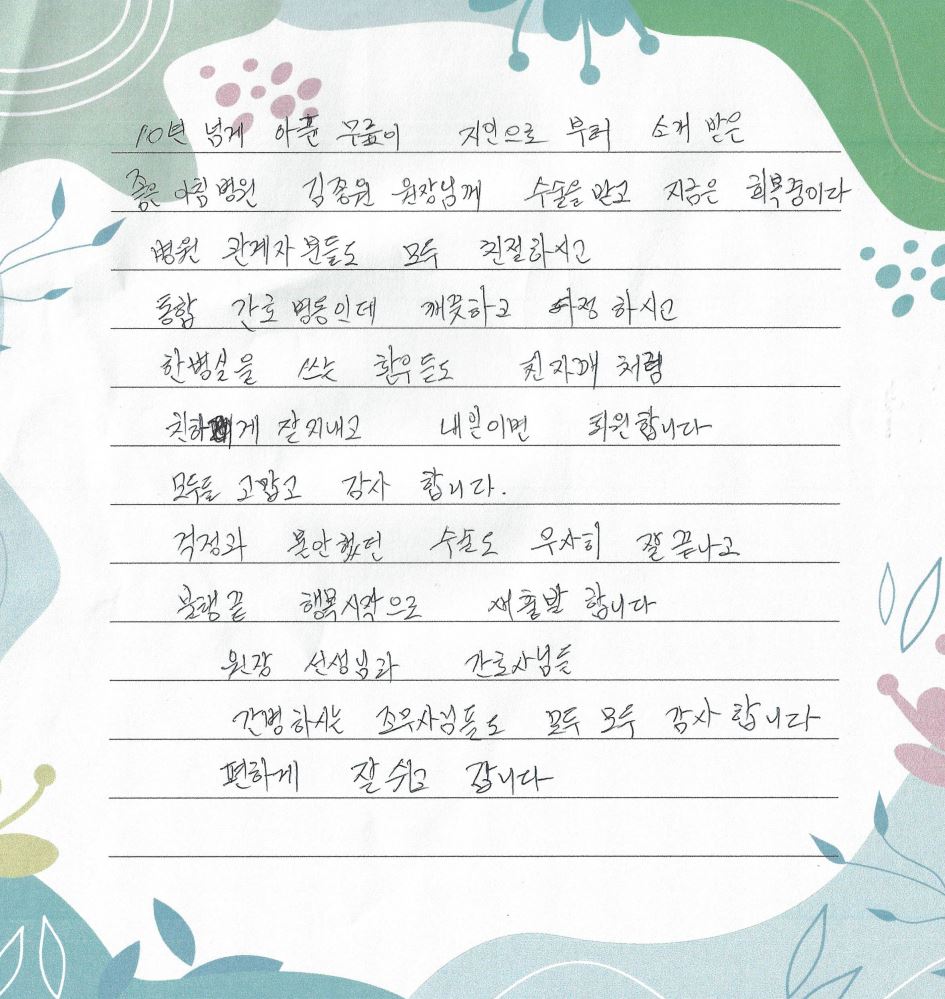 10년 넘게 아픈 무릎이 지인으로 부터 소개 받은
좋은아침병원 김종원 원장님께 수술을 받고 지금은 회복중이다
병원 관계자분들도 모두 친절하시고
통합 간호 병동인데 깨끗하고 하시고
한병실을 쓰는 환우들도 친자매 처럼
친하게 잘지내고 내일이면 퇴원합니다
모두들 고맙고 감사 합니다.
걱정과 불안했던 수술도 무사히 잘 끝나고
불행끝 행복시작으로 재출발 합니다
원장 선생님과 간호사님들
간병하시는 조무사님들도 모두 모두 감사합니다
편하게 잘 쉬고 갑니다